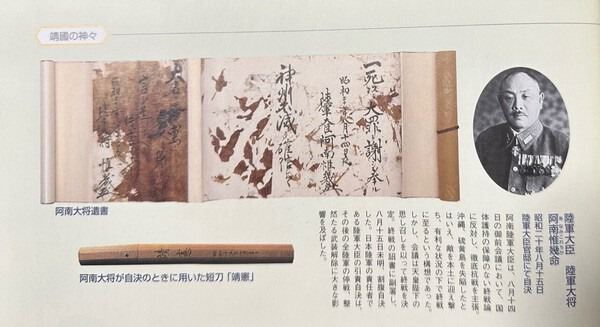 靖國の神々
一死以テ大罪ヲ謝シ奉ル
昭和二十年八月十四日夜
陸軍大臣 阿南惟幾
神州不滅ヲ確信シツヽ
阿南大将遺書
阿南大将が自決のときに用いた短刀「靖憲」
陸軍大臣 陸軍大将
阿南惟幾命
昭和二十年八月十五日
陸軍大臣官邸にて自決
阿南陸軍大臣は、八月十四
日の御前会議において、国
体護持の保障のない終戦論
に反対し、徹底抗戦を主張。
沖縄、硫黄島を失陥したと
はいえ、敵を本土に迎え撃
ち、有利な状況の下で終戦
に至るという構想であった。
しかし、会議は天皇陛下の
思し召しを以って終戦を決
定。終戦の詔書に副署し、
八月十五日未明、割腹自決
した。日本陸軍の責任者で
ある陸軍大臣の引責自決は、
その後の全陸軍の停戦、整
然たる武装解除に大きな影
響を及ぼした。